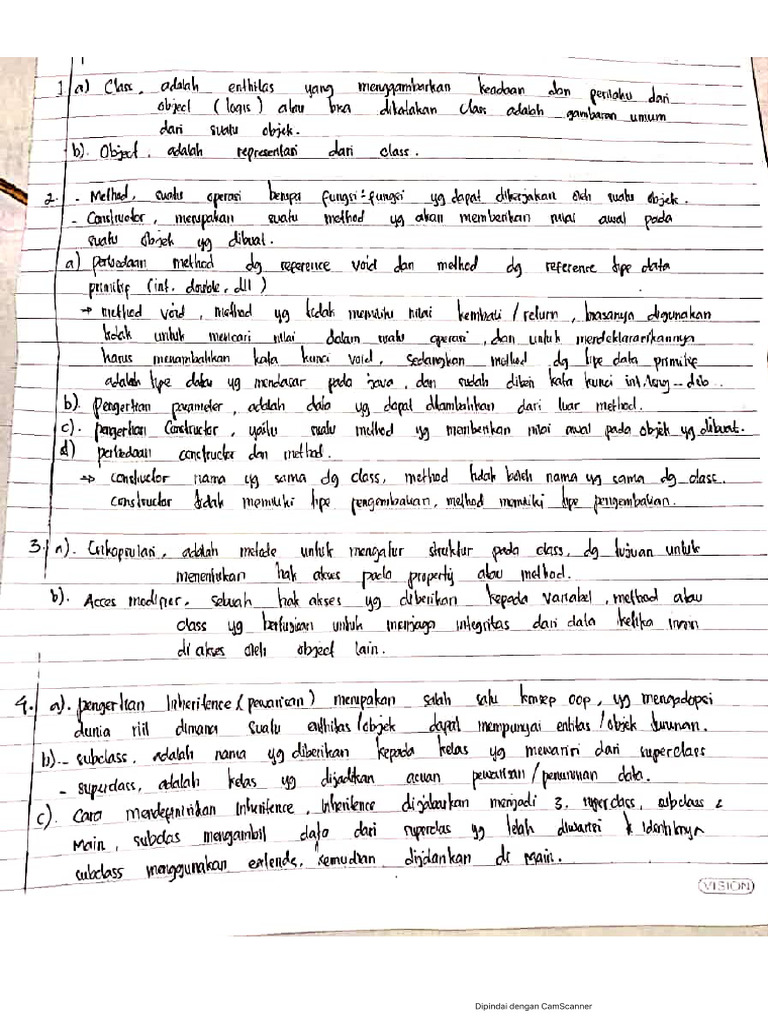 1. a) Class, adalah enthitas yang menggambarkan keadaan dan perilaku dari
object (logis) atau bisa dikatakan class adalah gambaran umum
dari suatu objek.
b). Object, adalah representasi dari class.
2. - Method, suatu operasi berupa fungsi-fungsi yg dapat dikerjakan oleh suatu objek.
- Constructor, merupakan suatu method yg akan memberikan nilai awal pada
suatu objek yg dibuat.
a) perbedaan method dg reference void dan method dg reference tipe data
primitif (int, double, dll)
→ method void, method yg tidak memiliki nilai kembali / return, biasanya digunakan
tidak untuk mencari nilai dalam suatu operasi, dan untuk mendeklarasikannya
harus menambahkan kata kunci void, sedangkan method dg tipe data primitif
adalah tipe data yg mendasar pada java, dan sudah diberi kata kunci int, long
b). pengertian parameter, adalah data yg dapat ditambahkan dari luar method.
c). pengertian Constructor, yaitu suatu method yg memberikan nilai awal pada objek yg dibuat.
d) perbedaan constructor dan method.
→ constructor nama yg sama dg class, method tidak boleh nama yg sama dg class.
constructor tidak memiliki tipe pengembalian, method memiliki tipe pengembalian.
3. a). adalah metode untuk mengatur struktur pada class, dg tujuan untuk
menentukan hak akses pada property atau method.
b). Acces modifier, sebuah hak akses yg diberikan kepada variabel, method atau
class yg berfungsi untuk menjaga integritas dari data ketika
di akses oleh object lain.
4. a). pengertian Inheritence (pewarisan) merupakan salah satu konsep oop, yg mengadopsi
dunia riil dimana suatu enthitas/objek dapat mempunyai entitas/objek turunan.
b). - subclass, adalah nama yg diberikan kepada kelas yg mewarisi dari superclass
- superclass, adalah kelas yg dijadikan acuan pewarisan/penurunan data.
c). Cara mendefinisikan Inheritence, Inheritence dijabarkan menjadi 3, superclass, subclass &
Main, subclas mengambil data dari superclas yg telah diwarisi
subclass menggunakan extends, kemudian dijalankan di Main.
VISION
Dipindai dengan CamScanner